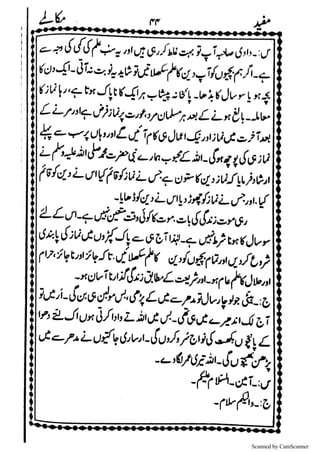 مفید ۴۴ مکالمے
س:۔ دادی صاحبہ آپ تو بہت غلط کر رہی ہیں اور یہ سب علم کی کمی کی وجہ سے
ہے۔ اگر ہم بچیوں کو آپ دین کا علم سکھلاتیں تو شاید یہ نوبت نہ آتی۔ ایک دن کا
بچہ ہو یا سو سال کا بڈھا۔ پاخانہ پیشاب ہر ایک کا ناپاک ہوتا ہے، رہا نماز کا
معاملہ۔ بالغ ہونے کے بعد ہر مسلمان مرد، عورت پر نماز فرض ہے اور مرنے کے
بعد آخرت میں نماز اور نیک اعمال ہی کام آئیں گے اور وہاں پر سب سے پہلے
نماز ہی کی پوچھ ہوگی۔ اللہ کے محبوب ہمارے نبی حضرت محمد صلی اللہ علیہ وسلم نے
ارشاد فرمایا کہ نماز دین کا ستون ہے جس نے نماز کو قائم کیا اس نے دین کو قائم
کیا۔ اور جس نے نماز کو چھوڑ دیا اس نے دین کو ڈھایا۔
رہی موت زندگی کی بات، موت کا کوئی وقت متعین نہیں ہے۔ اس کے لئے
سو سال کا ہونا شرط نہیں ہے۔ لہٰذا آج ہی سے پاک کپڑوں میں نماز کی پابندی
شروع کر دیں اور تمام بچیوں کو دین کا علم سکھلائیں، تاکہ جائز اور ناجائز، حرام
اور حلال کا علم عام ہو۔ اور شریعت کے مطابق زندگی گذارنا آسان ہو۔
ج:۔ بیٹی جو چار سال تو مدرسے میں کے پڑھی، بس مولبن ہی بن گی۔ اَر میں تو
آج لک اندیرے میں ہی تھی۔ بس میں اللہ تے وادا کرتی ہوں اک لتے دھوا
کے پانچوں بکھت کی نواج سُرو کروں گی۔ ارساری جاکتیوں نے مدرسے میں
پڑھن بھیجوں گی۔ اللہ تیری عمر لگا دے۔
س:۔ آمین۔ السلام علیکم۔
ج:۔ والیکم سلام۔
Scanned by CamScanner